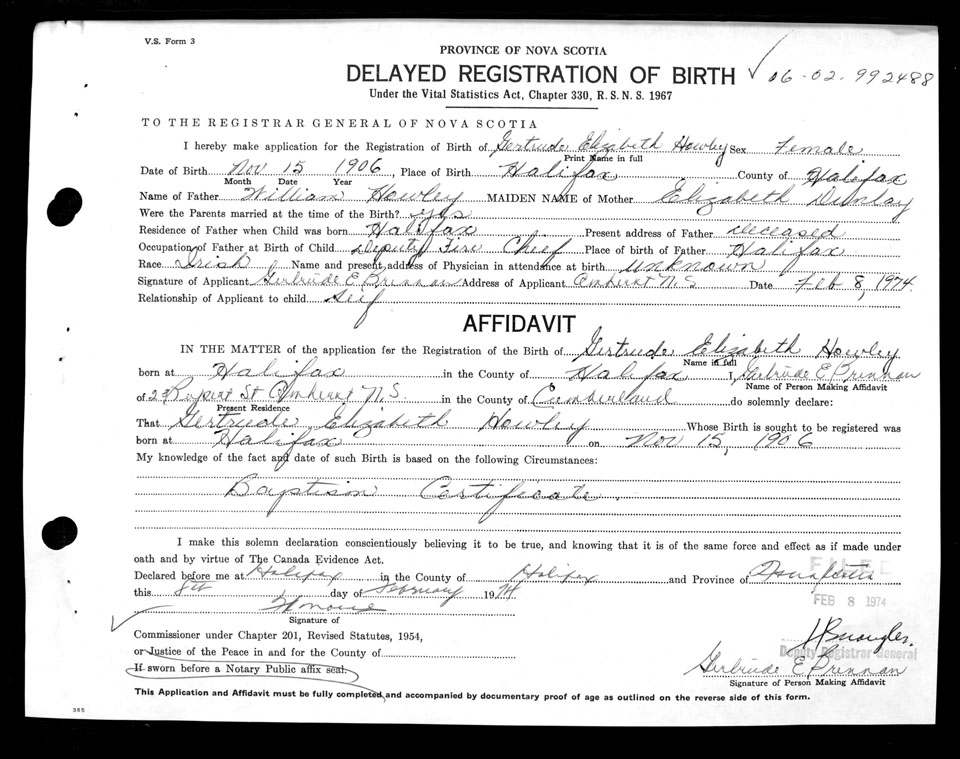 V.S. Form 3
PROVINCE OF NOVA SCOTIA
DELAYED REGISTRATION OF BIRTH 06-02-992488
Under the Vital Statistics Act, Chapter 330, R.S.N.S. 1967
TO THE REGISTRAR GENERAL OF NOVA SCOTIA
I hereby make application for the Registration of Birth of Gertrude Elizabeth Howley Sex Female
Print Name in full
Date of Birth Nov 15 1906, Place of Birth Halifax County of Halifax
Month Date Year
Name of Father William Howley MAIDEN NAME of Mother Elizabeth Dunlay
Were the Parents married at the time of the Birth? yes
Residence of Father when Child was born Halifax Present address of Father deceased
Occupation of Father at Birth of Child Deputy Fire Chief Place of birth of Father Halifax
Race Irish Name and present address of Physician in attendance at birth unknown
Signature of Applicant Gertrude E Brennan Address of Applicant Amherst N.S Date Feb 8, 1974
Relationship of Applicant to child Self
AFFIDAVIT
IN THE MATTER of the application for the Registration of the Birth of Gertrude Elizabeth Howley
Name in full
born at Halifax in the County of Halifax I, Gertrude E Brennan
Name of Person Making Affidavit
of Rupert St Amherst N.S. in the County of Cumberland do solemnly declare:
Present Residence
That Gertrude Elizabeth Howley Whose Birth is sought to be registered was
born at Halifax on Nov 15, 1906
My knowledge of the fact and date of such Birth is based on the following Circumstances:
Baptism Certificate.
I make this solemn declaration conscientiously believing it to be true, and knowing that it is of the same force and effect as if made under
oath and by virtue of The Canada Evidence Act.
Declared before me at Halifax in the County of Halifax and Province of Nova Scotia
this 8th day of February 1974
FILED
FEB 8 1974
Signature of
Commissioner under Chapter 201, Revised Statutes, 1954,
or Justice of the Peace in and for the County of
Deputy Registrar General
If sworn before a Notary Public affix seal.
Gertrude E Brennan
Signature of Person Making Affidavit
This Application and Affidavit must be fully completed, and accompanied by documentary proof of age as outlined on the reverse side of this form.
385